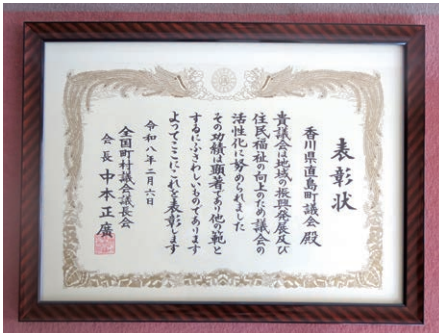 表彰状
香川県直島町議会殿
貴議会は地域の振興発展及び
住民福祉の向上のため議会の
活性化に努められました
その功績は顕著であり他の範と
するにふさわしいものであります
よってここにこれを表彰します
令和八年二月六日
全国町村議会議長会
会長 中本正廣